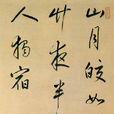 山月皎如
竹夜半
人獨宿